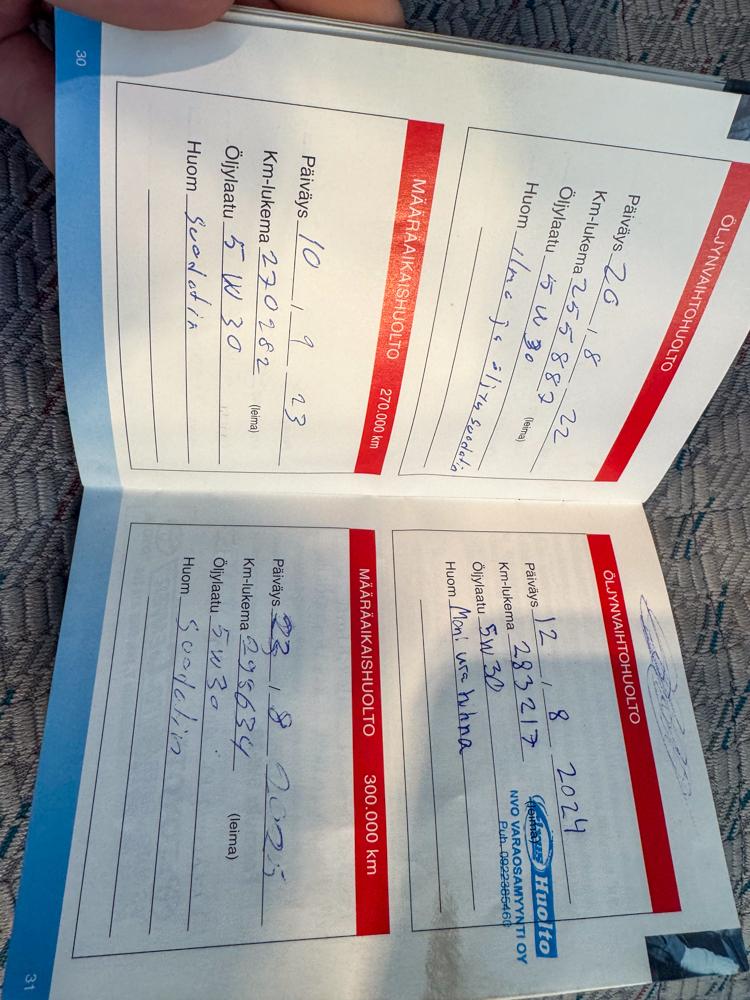 ÖLJYNVAIHTOHUOLTO
Päiväys 26 . 8 22
Km-lukema 255887
Öljylaatu 5W30 (leima)
Huom ilma ja öljysuodatin
MÄÄRÄAIKAISHUOLTO 270.000 km
Päiväys 10 . 9 23
Km-lukema 270282
Öljylaatu 5W30 (leima)
Huom suodatin
30
ÖLJYNVAIHTOHUOLTO
Päiväys 12 . 8 2024
Km-lukema 283217
Öljylaatu 5W30
Huom Moniurahihna
Huolto
NVO VARAOSAMYYNTI OY
Puh.
MÄÄRÄAIKAISHUOLTO 300.000 km
Päiväys . 8 2025
Km-lukema 299634
Öljylaatu 5W30 (leima)
Huom suodatin
31